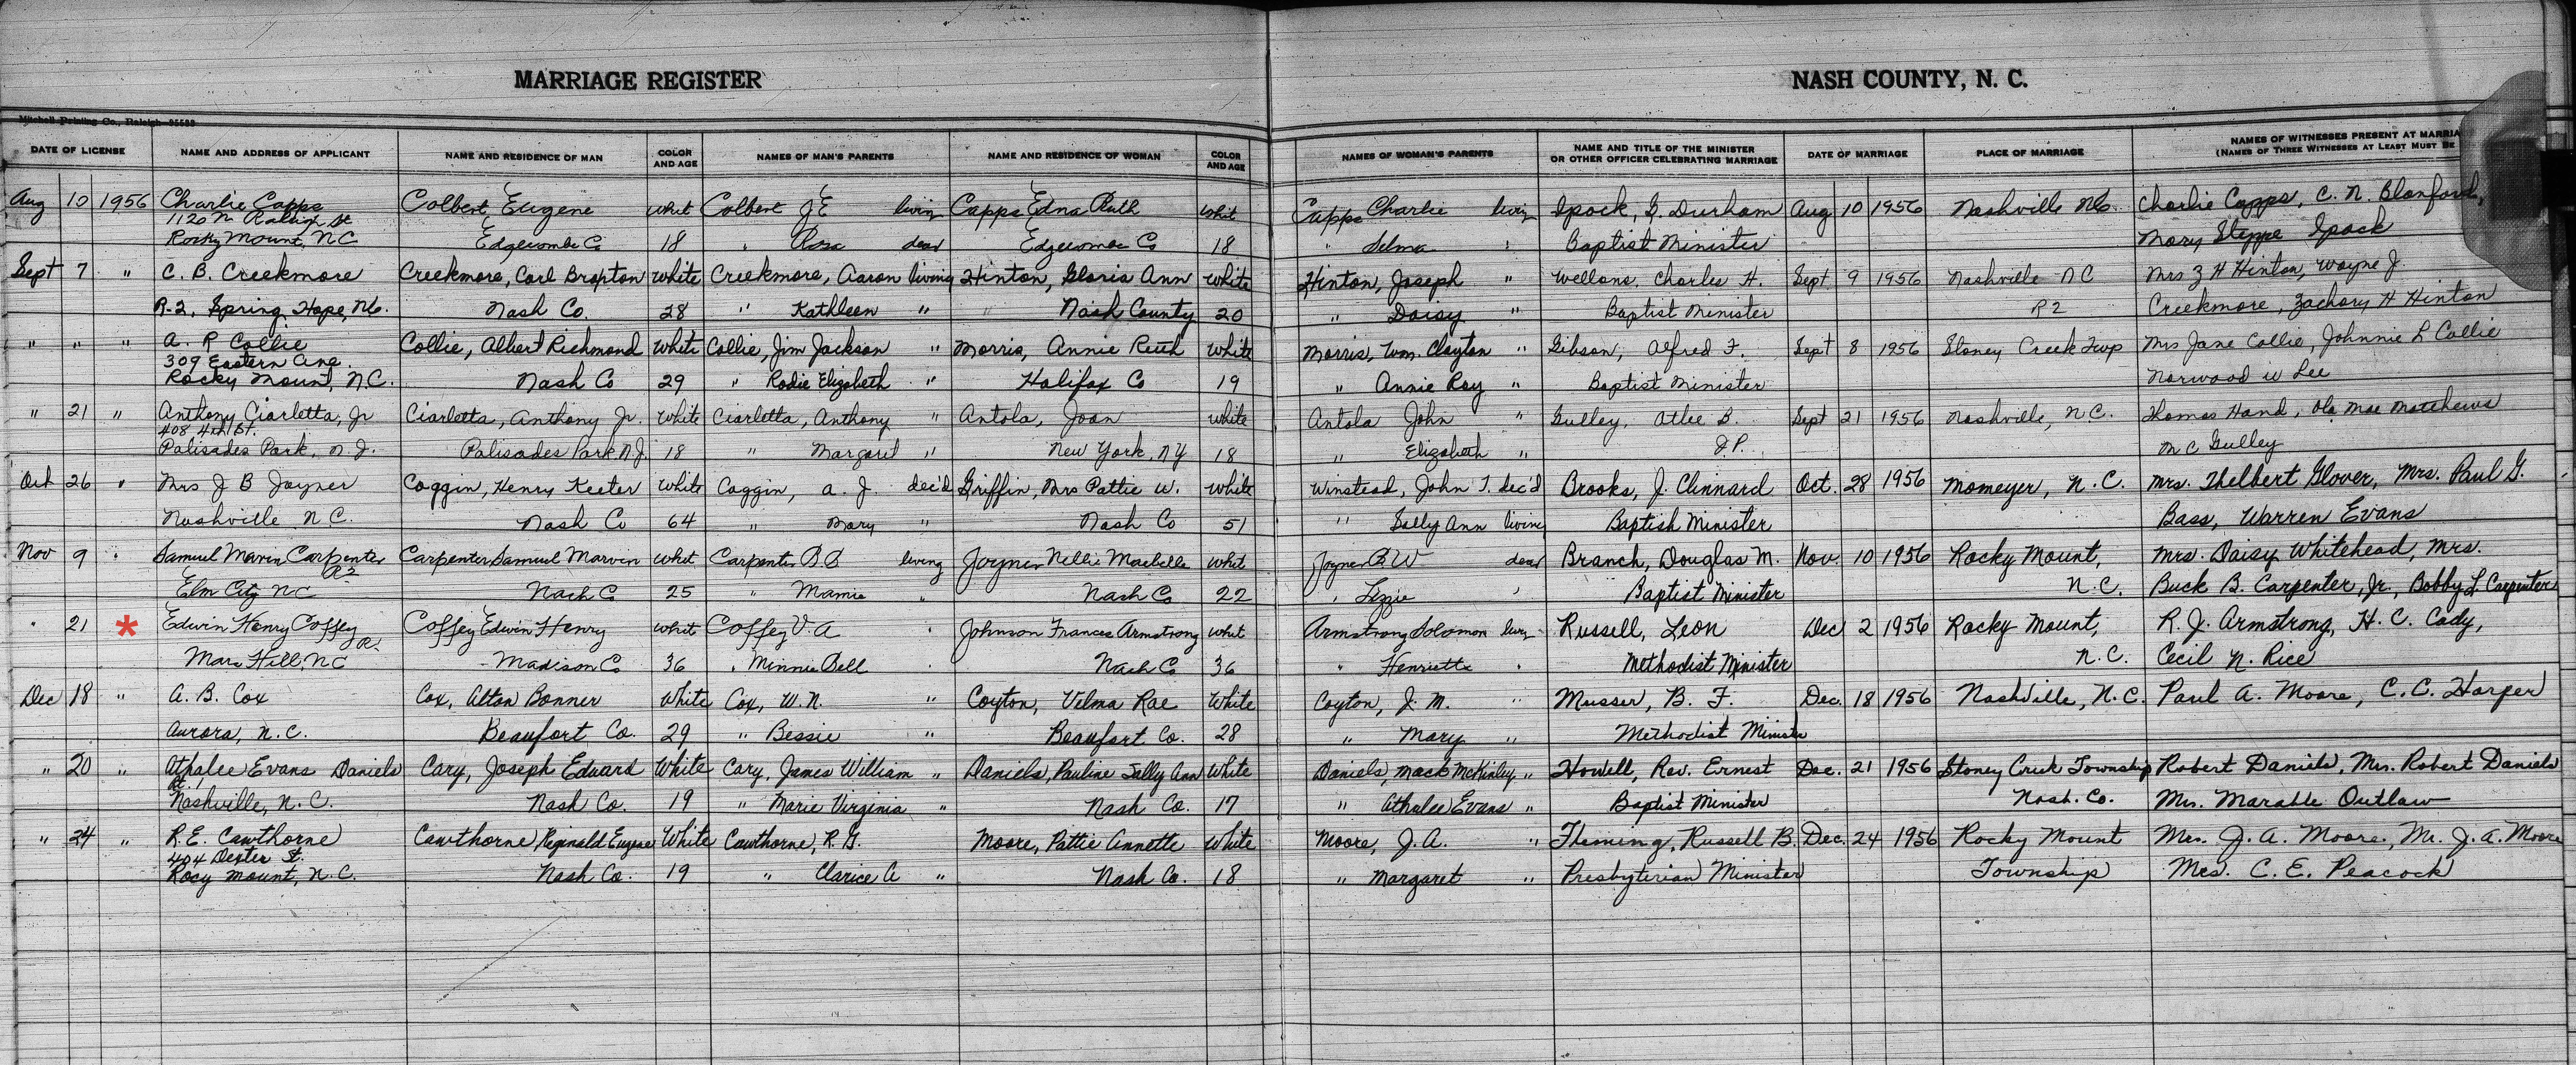 MARRIAGE REGISTER NASH COUNTY, N. C.
Mitchell Printing Co., Raleigh
DATE OF LICENSE NAME AND ADDRESS OF APPLICANT NAME AND RESIDENCE OF MAN COLOR AND AGE NAMES OF MAN'S PARENTS NAME AND RESIDENCE OF WOMAN COLOR AND AGE NAMES OF WOMAN'S PARENTS NAME AND TITLE OF THE MINISTER OR OTHER OFFICER CELEBRATING MARRIAGE DATE OF MARRIAGE PLACE OF MARRIAGE NAMES OF WITNESSES PRESENT AT MARRIA (NAMES OF THREE WITNESSES AT LEAST MUST BE
Aug 10 1956 Charlie Capps Colbert, Eugene whit Colbert J E living Capps Edna Ruth whit Capps Charlie living Ipock, G. Durham Aug 10 1956 Nashville NC Charlie Capps, C. N. Blanford,
1120 N Raleigh St
Rocky Mount, NC Edgecombe Co 18 " Rosa dead Edgecombe Co 18 " Selma " Baptist Minister Mary Steppe Ipock
Sept 7 " C. B. Creekmore Creekmore, Carl Braxton White Creekmore, Aaron living Hinton, Gloria Ann White Hinton, Joseph " Wellons, Charles H. Sept 9 1956 Nashville NC Mrs Z H Hinton, Wayne J.
R-2, Spring Hope, NC. Nash Co. 28 " Kathleen " Nash County 20 " Daisy " Baptist Minister R2 Creekmore, Zachory H Hinton
" " " A. R Collie Collie, Albert Richmond White Collie, Jim Jackson " Morris, Annie Ruth White Morris, Wm. Clayton " Gibson, Alfred F. Sept 8 1956 Stoney Creek Twp Mrs Jane Collie, Johnnie L Collie
309 Eastern Ave.
Rocky Mount, N.C. Nash Co 29 " Rodie Elizabeth " Halifax Co 19 " Annie Ray " Baptist Minister Norwood W Lee
" 21 " Anthony Ciarletta, Jr Ciarletta, Anthony Jr. White Ciarletta, Anthony " Antola, Joan White Antola John " Gulley, Atlee B. Sept 21 1956 Nashville, N.C. Thomas Hand, Ola Mae Matthews
408 4th St.
Palisades Park, N.J. Palisades Park N.J. 18 " Margaret " New York, NY 18 " Elizabeth " J.P. M C Gulley
Oct 26 " Mrs J B Joyner Coggin, Henry Keeter White Coggin, A. J. dec'd Griffin, Mrs Pattie W. White Winstead, John T. dec'd Brooks, J. Clinnard Oct. 28 1956 Momeyer, N.C. Mrs. Thelbert Glover, Mrs. Paul G.
Nashville N C. Nash Co 64 " Mary " Nash Co 51 " Sally Ann living Baptish Minister Bass, Warren Evans
Nov 9 " Samuel Marvin Carpenter Carpenter Samuel Marvin whit Carpenter B B living Joyner Nellie Maebelle whit Joyner B W dead Branch, Douglas M. Nov. 10 1956 Rocky Mount, Mrs. Daisy Whitehead, Mrs.
R2
Elm City NC Nash Co 25 " Mamie " Nash Co 22 " Lizzie " Baptist Minister N.C. Buck B. Carpenter, Jr., Bobby L Carpenter
" 21 * Edwin Henry Coffey Coffey Edwin Henry whit Coffey V. A " Johnson Frances Armstrong whit Armstrong Solomon living Russell, Leon Dec 2 1956 Rocky Mount, R. J. Armstrong, H. C. Cady,
Mars Hill NC Madison Co 36 " Minnie Bell " Nash Co 36 " Henrietta " Methodist Minister N.C. Cecil N. Rice
Dec 18 " A. B. Cox Cox, Alton Bonner White Cox, W. N. " Coyton, Velma Rae White Coyton, J. M. " Musser, B. F. Dec. 18 1956 Nashville, N.C. Paul A. Moore, C. C. Harper
Aurora, N.C. Beaufort Co. 29 " Bessie " Beaufort Co. 28 " Mary " Methodist Minister
" 20 " Athalee Evans Daniels Cary, Joseph Edward White Cary, James William " Daniels, Pauline Sally Ann White Daniels, Mack McKinley " Howell, Rev. Ernest Dec. 21 1956 Stoney Creek Township Robert Daniels, Mrs. Robert Daniels
Rt. 1
Nashville, N.C. Nash Co. 19 " Marie Virginia " Nash Co. 17 " Athalee Evans " Baptist Minister Nash. Co. Mrs. Marable Outlaw
" 24 " R.E. Cawthorne Cawthorne, Reginald Eugene White Cawthorne, R. G. Moore, Pattie Annette White Moore, J. A. " Fleming, Russell B. Dec. 24 1956 Rocky Mount Mrs. J. A. Moore, Mr. J. A. Moore
404 Dexter St.
Rocy Mount, N.C. Nash Co. 19 " Clarice A " Nash Co. 18 " Margaret " Presbyterian Minister Township Mrs. C. E. Peacock